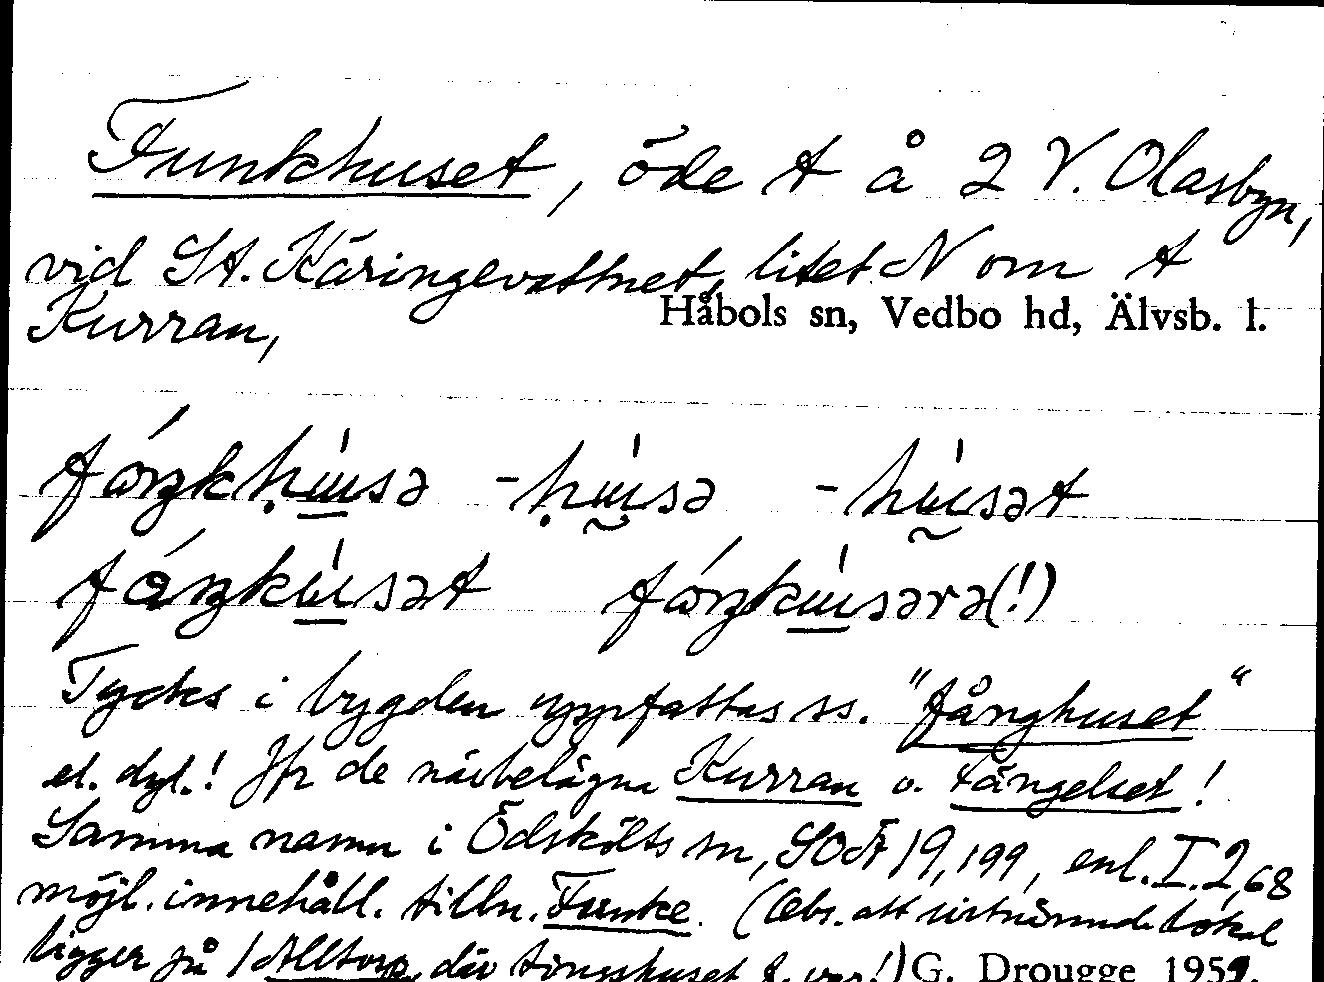 Funkhuset, öde t å 2 V. Olasbyn,
vid St. Käringevattnet, litet N om t
Kurran,
Håbols sn, Vedbo hd, Älvsb. l.
Tycks i bygden uppfattas ss. "fånghuset"
el. dyl.! Jfr de närbelägna Kurran o. Fängelset!
Samma namn i Ödskölts sn, SOÄ 19,199, enl. I.2,68
möjl. innehåll. tilln. Funke. (Obs. att sistnämnda lokal
ligger på 1 Alltorp, där tingshuset f. var!) G. Drougge 1959.